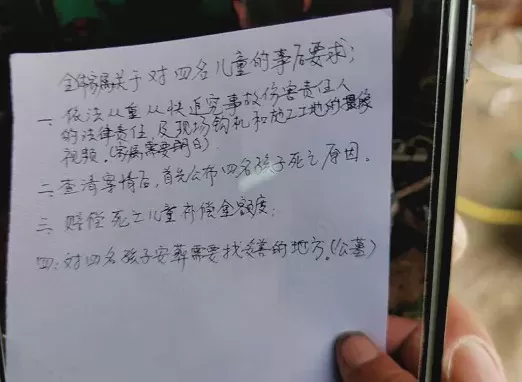 全体家属关于对四名儿童的事后要求:
一、依法从重从快追究事故伤害责任人
的法律责任,及现场钩机和施工工地的摄像
视频。(家属需要明白)
二、查清事情后,首先公布四名孩子死亡原因。
三、赔偿死亡儿童补偿金额度;
四:对四名孩子安葬需要找妥善的地方。(公墓)